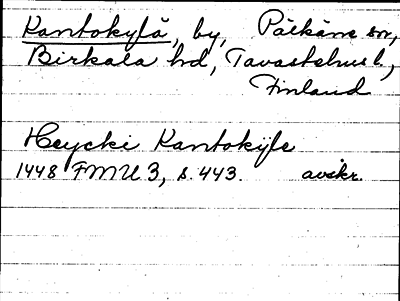 Kantokylä, by, Pälkäne sn,
Birkala hd, Tavastehus l.,
Finland
Heycki Kantokÿle
1448 FMU 3, s. 443. avskr.